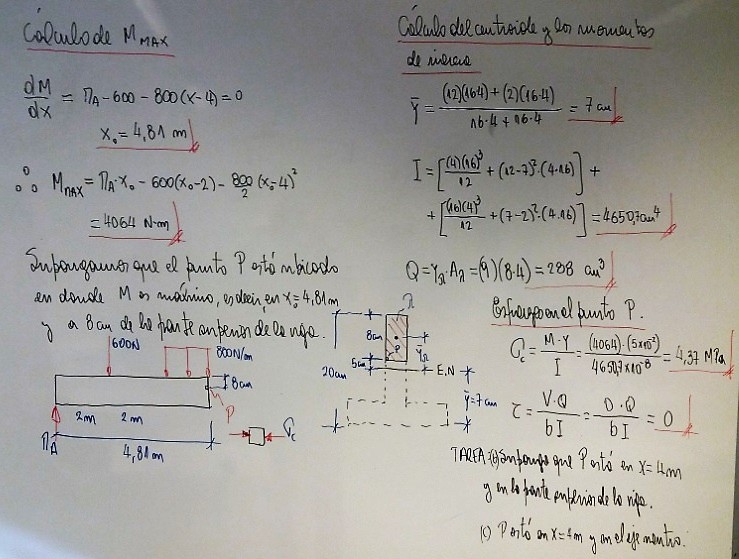 Cálculo de M MAX
dM/dx = ΠA - 600 - 800(x-4) = 0
x₀ = 4,81 m
∴ Mmax = ΠA·x₀ - 600(x₀-2) - 800/2 (x₀-4)²
= 4064 N-m
Supongamos que el punto P está ubicado
en donde M es máximo, es decir, en x₀= 4,81m
y a 8cm de la parte superior de la viga.
600N
800N/m
8cm
2m 2m
P
ΠA
4,81m
σc
Cálculo del centroide y los momentos
de inercia
Ȳ = (12)(16·4) + (2)(16·4) / 16·4 + 16·4 = 7 cm
I = [(4)(16)³/12 + (12-7)²·(4·16)] +
+ [(16)(4)³/12 + (7-2)²·(4·16)] = 4650,7cm⁴
Q = y·A = (9)(8·4) = 288 cm³
8cm
P
5cm
20cm
E.N
ȳ=7cm
Esfuerzo en el punto P.
σc = M·Y/I = (4064)·(5x10⁻²)/4650,7x10⁻⁸ = 4,37 MPa
τ = V·Q/bI = 0·Q/bI = 0
TAREA: (b) Suponga que P está en x=4m
y en la parte superior de la viga.
(c) P está en x=4m y en el eje neutro.